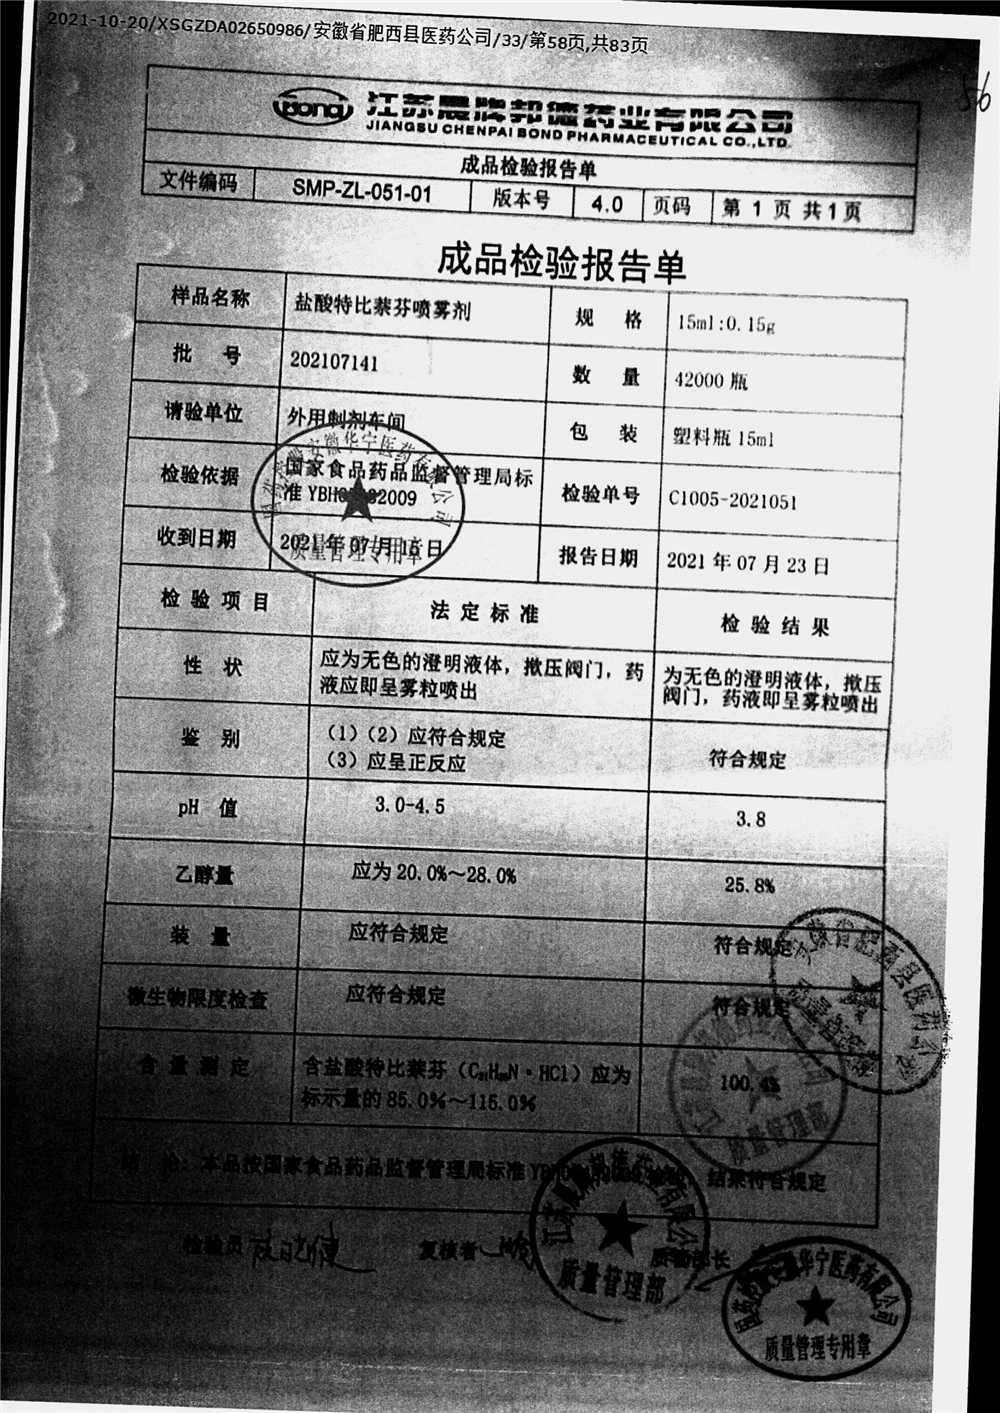 2021-10-20/XSGZDA02650986/安徽省肥西县医药公司/33/第58页,共83页
56
Bond 江苏晨牌邦德药业有限公司
JIANGSU CHENPAI BOND PHARMACEUTICAL CO.,LTD.
成品检验报告单
文件编码 SMP-ZL-051-01 版本号 4.0 页码 第 1 页 共1页
成品检验报告单
样品名称 盐酸特比萘芬喷雾剂 规 格 15ml:0.15g
批 号 202107141 数 量 42000 瓶
请验单位 外用制剂车间 包 装 塑料瓶 15ml
检验依据 国家食品药品监督管理局标准 YBH 82009 检验单号 C1005-2021051
收到日期 2021 年 07 月 15 日 报告日期 2021 年 07 月 23 日
检 验 项 目 法 定 标 准 检 验 结 果
性 状 应为无色的澄明液体，揿压阀门，药 为无色的澄明液体，揿压
液应即呈雾粒喷出 阀门，药液即呈雾粒喷出
鉴 别 （1）（2）应符合规定 符合规定
（3）应呈正反应
pH 值 3.0-4.5 3.8
乙醇量 应为 20.0%～28.0% 25.8%
装 量 应符合规定 符合规定
微生物限度检查 应符合规定 符合规定
含 量 测 定 含盐酸特比萘芬（C₂₁H₂₅N·HCl）应为 100.4%
标示量的 85.0%～115.0%
结 论：本品按国家食品药品监督管理局标准 结果符合规定
检验员 复核者 质管部长
安徽华宁医药有限公司
质量管理专用章
安徽省肥西县医药公司
江苏晨牌邦德药业有限公司
质量管理部
江苏晨牌邦德药业有限公司
质量管理部
安徽华宁医药有限公司
质量管理专用章